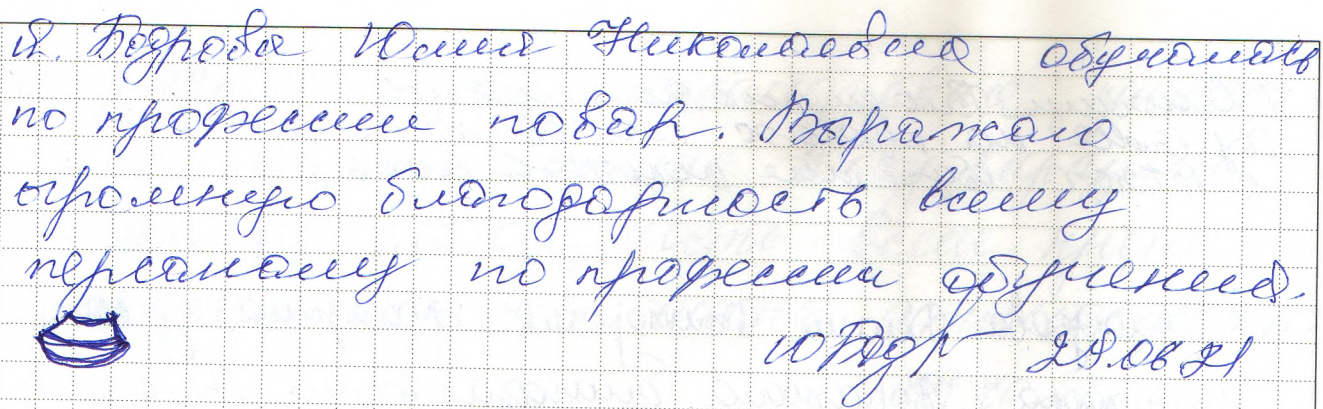 Я. Бодрова Юлия Николаевна обучалась
по професси повар. Выражаю
огромную благодарность всему
персоналу по професси обучения.
ЮБодр 29.06.21